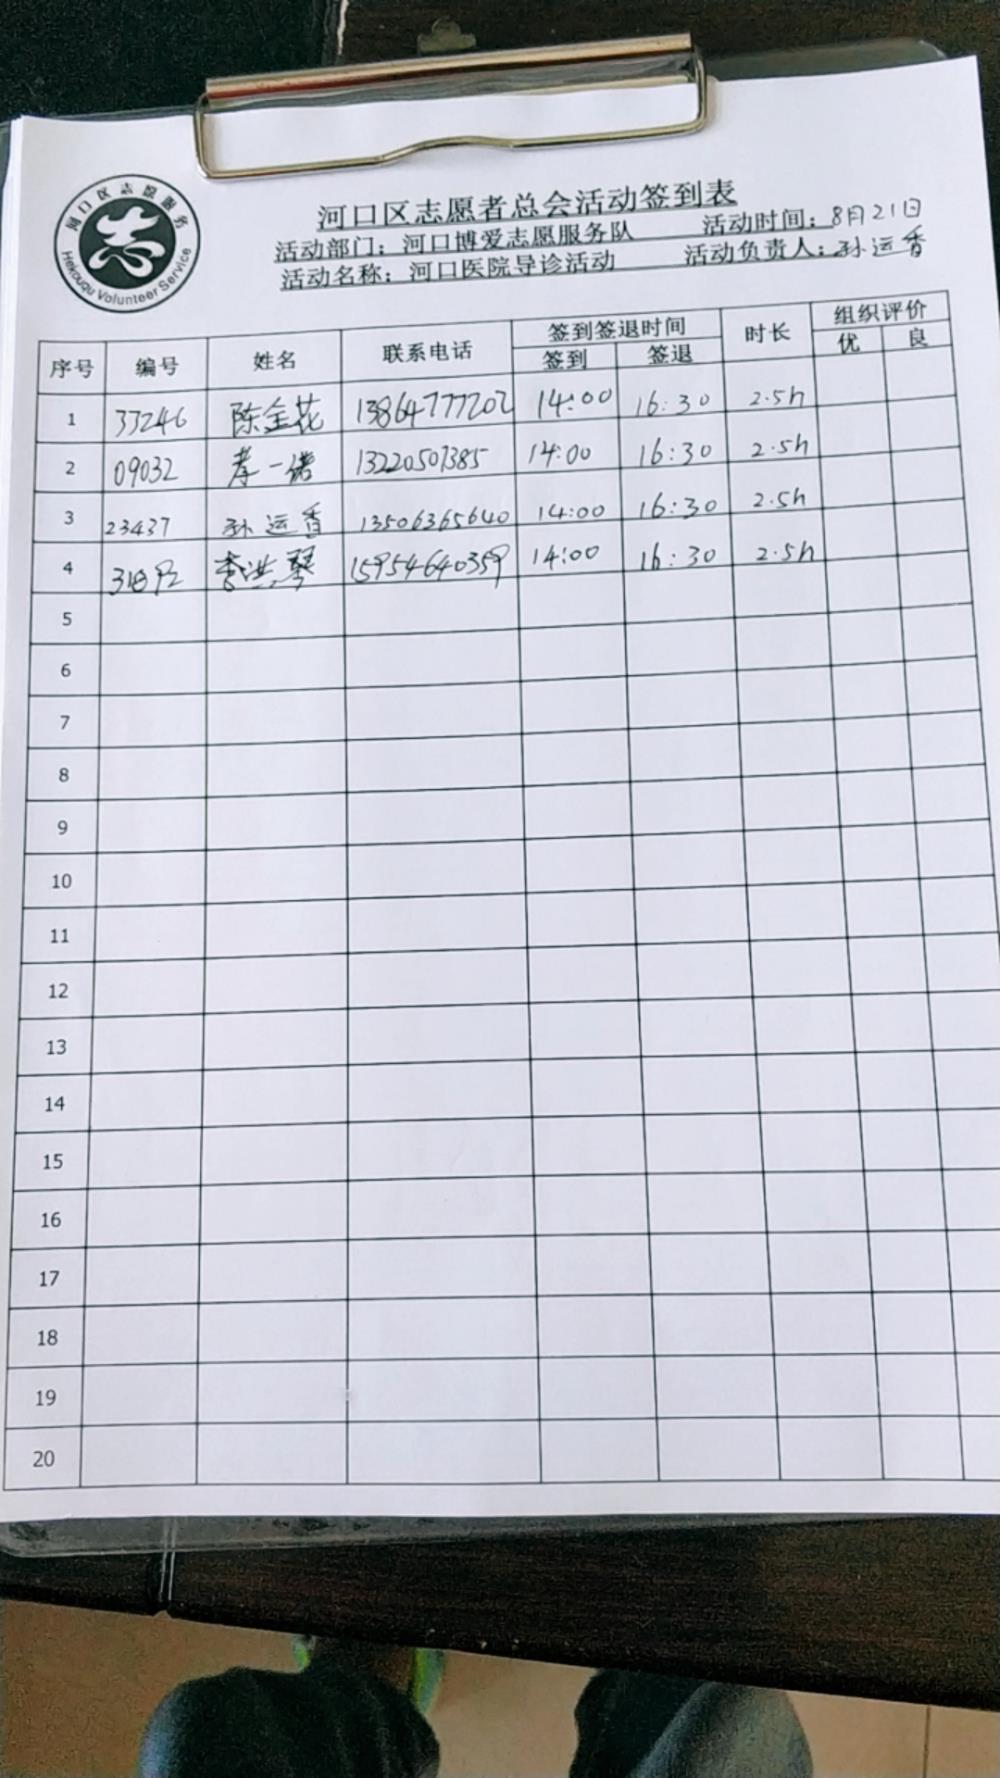 河口区志愿服务
志
Hekouqu Volunteer Service
河口区志愿者总会活动签到表
活动部门：河口博爱志愿服务队 活动时间：8月21日
活动名称：河口医院导诊活动 活动负责人：孙运香
序号 编号 姓名 联系电话 签到签退时间 时长 组织评价
签到 签退 优 良
1 33246 陈金花 13864777202 14:00 16:30 2.5h
2 09032 一诺 13220507385 14:00 16:30 2.5h
3 23437 孙运香 13506365640 14:00 16:30 2.5h
4 31892 李洪琴 15954640359 14:00 16:30 2.5h
5
6
7
8
9
10
11
12
13
14
15
16
17
18
19
20